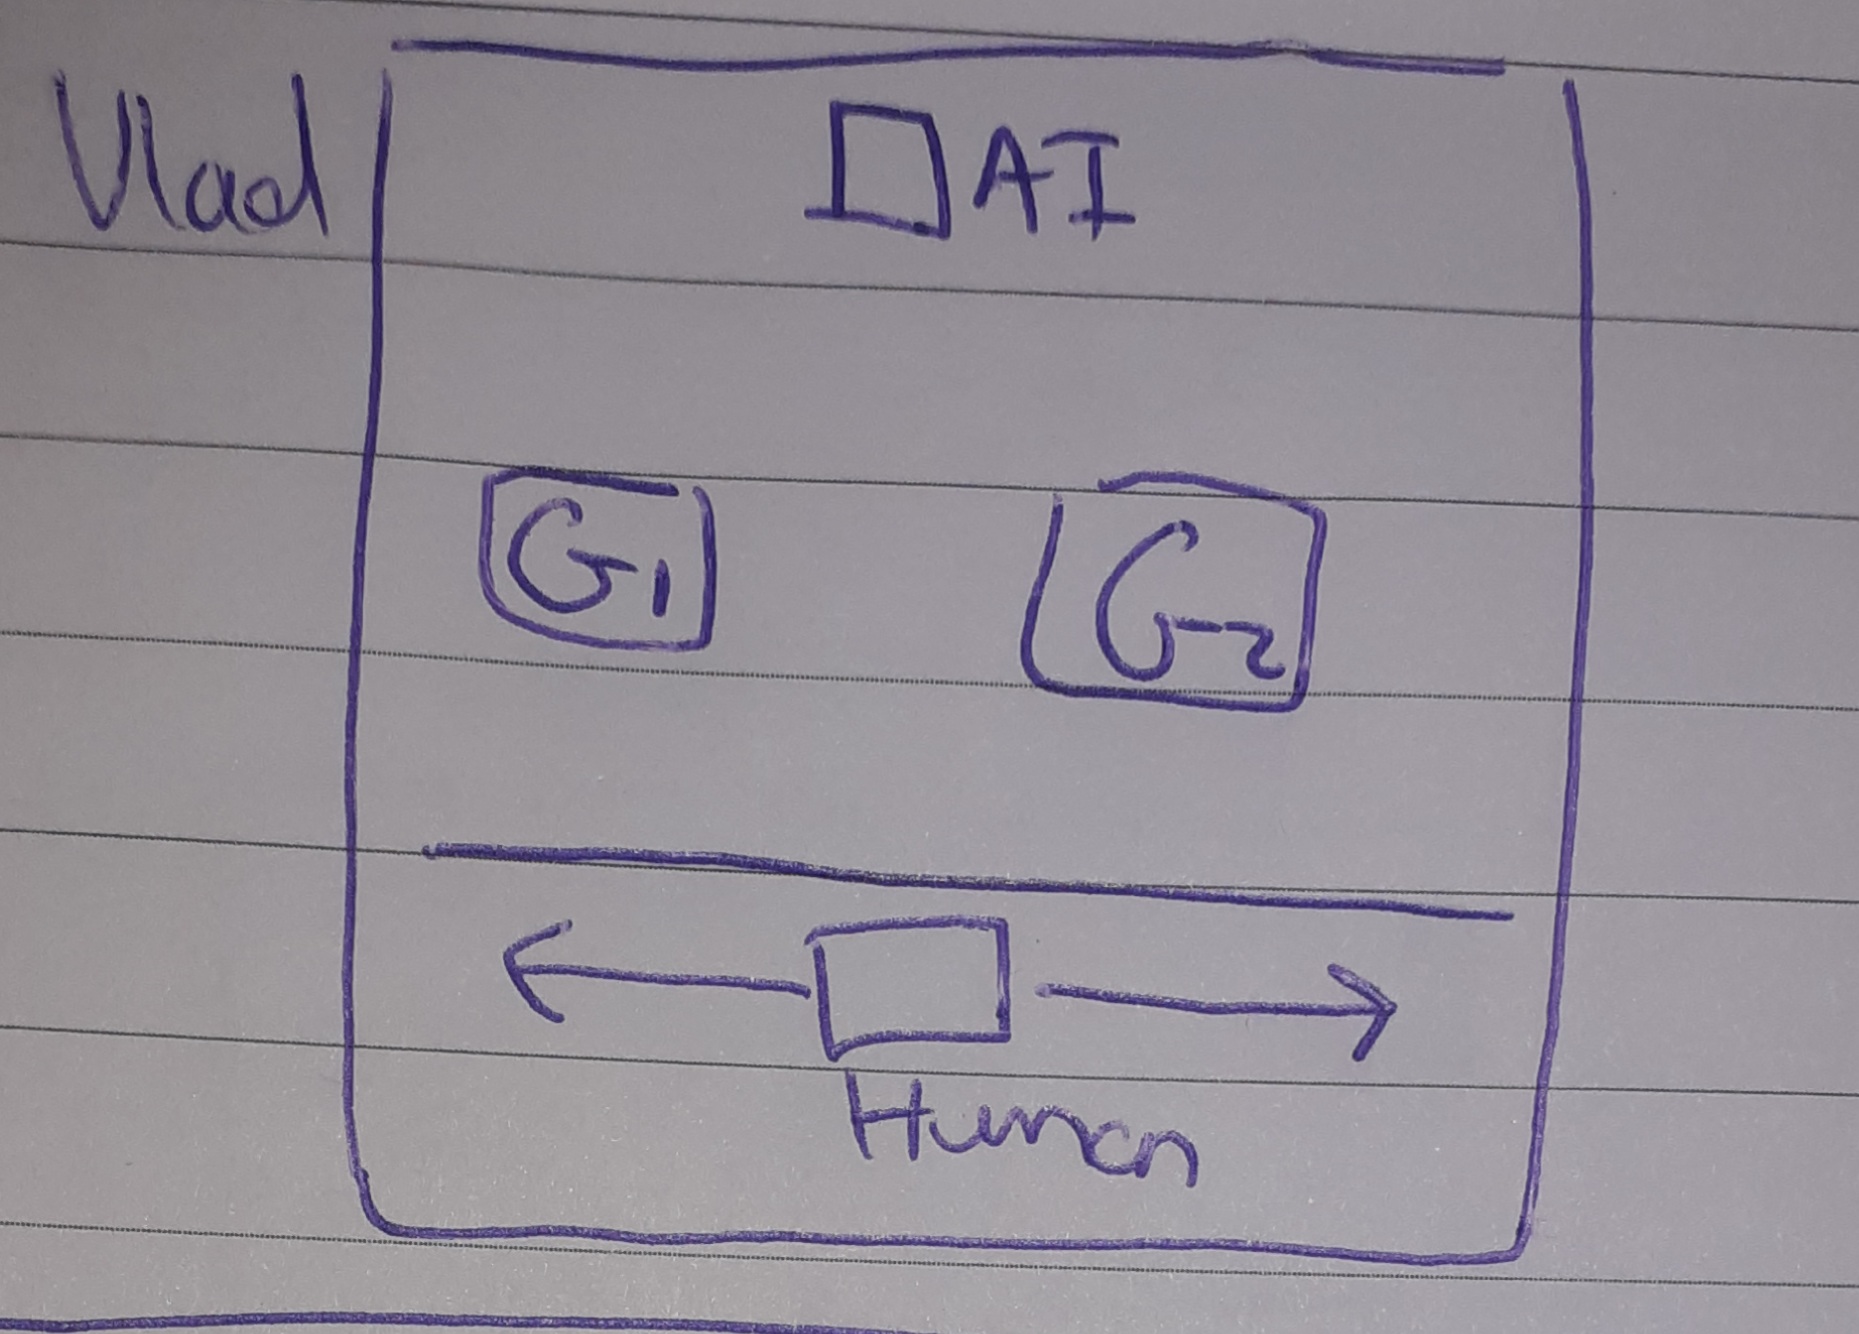 Vlad
AI
G1 G2
Human